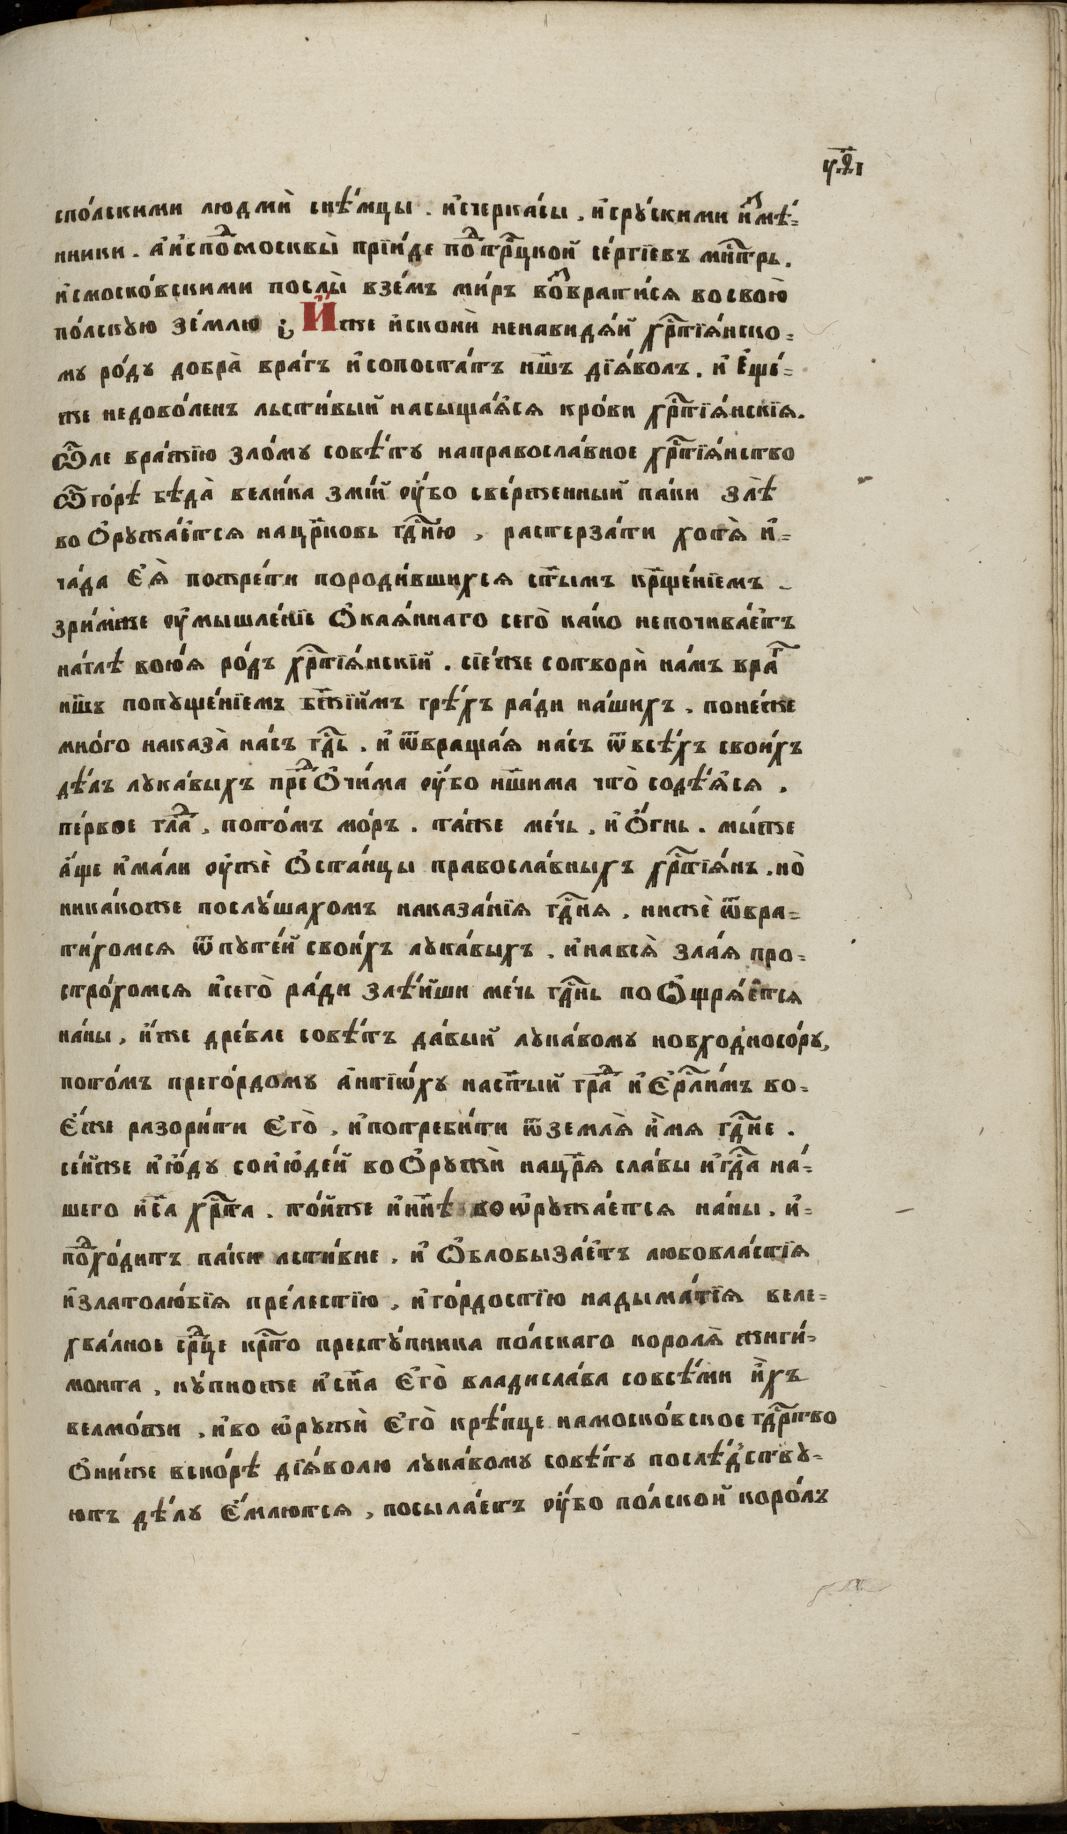 сп́олскими людмѝ снѣ́мцы . и҆счерка́сы , и҆сру́скими и҆ꙁмѣ́=
нники . а҆и҆споⷣмосквы̀ прїи́де поⷣтрⷪ҇цкой се́ргїевъ мнⷭ҇тръ .
и҆смоско́вскими послы̀ взе́мъ ми́ръ воꙁврати́ся во свою̀
по́лскую зе́млю ; И҆́же и҆сконѝ ненавидѧ́й хрⷭ҇тїѧ́нско=
му ро́ду добра̀ вра́гъ и҆сопоста́тъ нш҃ъ дїѧ́волъ . и҆ є҆ще́=
же недово́ленъ льсти́вый насыща́ѧся кро́ви хрⷭ҇тїѧ́нскїѧ .
Ѽле вра́жїю зло́му совѣ́ту направосла́вное хрⷭ҇тїѧ́нство
Ѽго́рѣ бѣда̀ вели́ка змі́й ᲂу҆́бо све́рженный па́ки злѣ̀
во ѻ҆ружа́ется нацр҃ковь гдⷭ҇ню , растерза́ти хотѧ̀ и҆=
ча́да є҆ѧ̀ пожре́ти породи́вшихся ст҃ымъ крщ҃е́нїемъ .
зри́мже ᲂу҆мышле́нїе ѻ҆каѧ́ннаго сего̀ ка́ко непочива́етъ
на́глѣ вою́ѧ ро́дъ хрⷭ҇тїѧ́нскїй . сїе́же сотворѝ на́мъ враⷢ҇
нш҃ъ попуще́нїемъ бж҃їимъ грѣ́хъ ра́ди на́шихъ , поне́же
мно́го наказа̀ на́съ гдⷭ҇ь , и҆ ѿвраща́ѧ на́съ ѿвсѣ́хъ свои́хъ
дѣ́лъ лука́выхъ преⷣ ѻ҆чи́ма ᲂу҆́бо нш҃има что̀ содѣ́ѧся .
пе́рвое глаⷣ , пото́мъ мо́ръ . та́же ме́чь , и҆ ѻ҆́гнь . мы́же
а҆́ще и҆ма́ли ᲂу҆жѐ ѻ҆ста́нцы правосла́вныхъ хрⷭ҇тїѧ́нъ . но̀
ника́коже послу́шахомъ наказа́нїѧ гдⷭ҇нѧ , нижѐ ѿвра=
ти́хомся ѿпуте́й свои́хъ лука́выхъ . и҆навсѧ̀ зла́ѧ про=
стро́хомся и҆сего̀ ра́ди злѣ́йши ме́чь гдⷭ҇нь по ѻ҆щрѧ́ется
на́ны , и҆́же дре́вле совѣ́тъ да́вый лука́вому новходносо́ру ,
пото́мъ прего́рдому а҆нтїѡ́ху наст҃ый граⷣ и҆ є҆рⷭ҇ли́мъ во=
є҆́же разори́ти є҆го̀ , и҆потреби́ти ѿземлѧ̀ и҆́мя гдⷭ҇не .
се́йже и҆ ю҆́ду со и҆ю҆де́й во ѻ҆ружѝ нацр҃ѧ сла́вы и҆гдⷭ҇а на́=
шего і҆и҃са хрⷭ҇та . то́йже и҆ нн҃ѣ во ѡ҆ружа́ется на́ны . и҆=
поⷣхо́дитъ па́ки лсти́вне , и҆ ѻ҆блобыза́етъ любовла́стїѧ
и҆златолю́бїѧ пре́лестїю , и҆го́рдостїю надыма́тїѧ веле=
хва́лное срⷣце крⷭ҇то престу́пника по́лскаго королѧ̀ жиги́=
монта , ку́пноже и҆сн҃а є҆го̀ владисла́ва совсѣ́ми и҆́хъ
велмо́жи , и҆во ѡ҆ружѝ є҆го̀ крѣ́пце намоско́вское гдⷭ҇рство
ѻ҆ни́же вско́рѣ дїѧ́волю лука́вому совѣ́ту послѣ́дству=
ютъ дѣ́лу є҆́млются , посыла́етъ ᲂу҆́бо по́лской коро́лъ